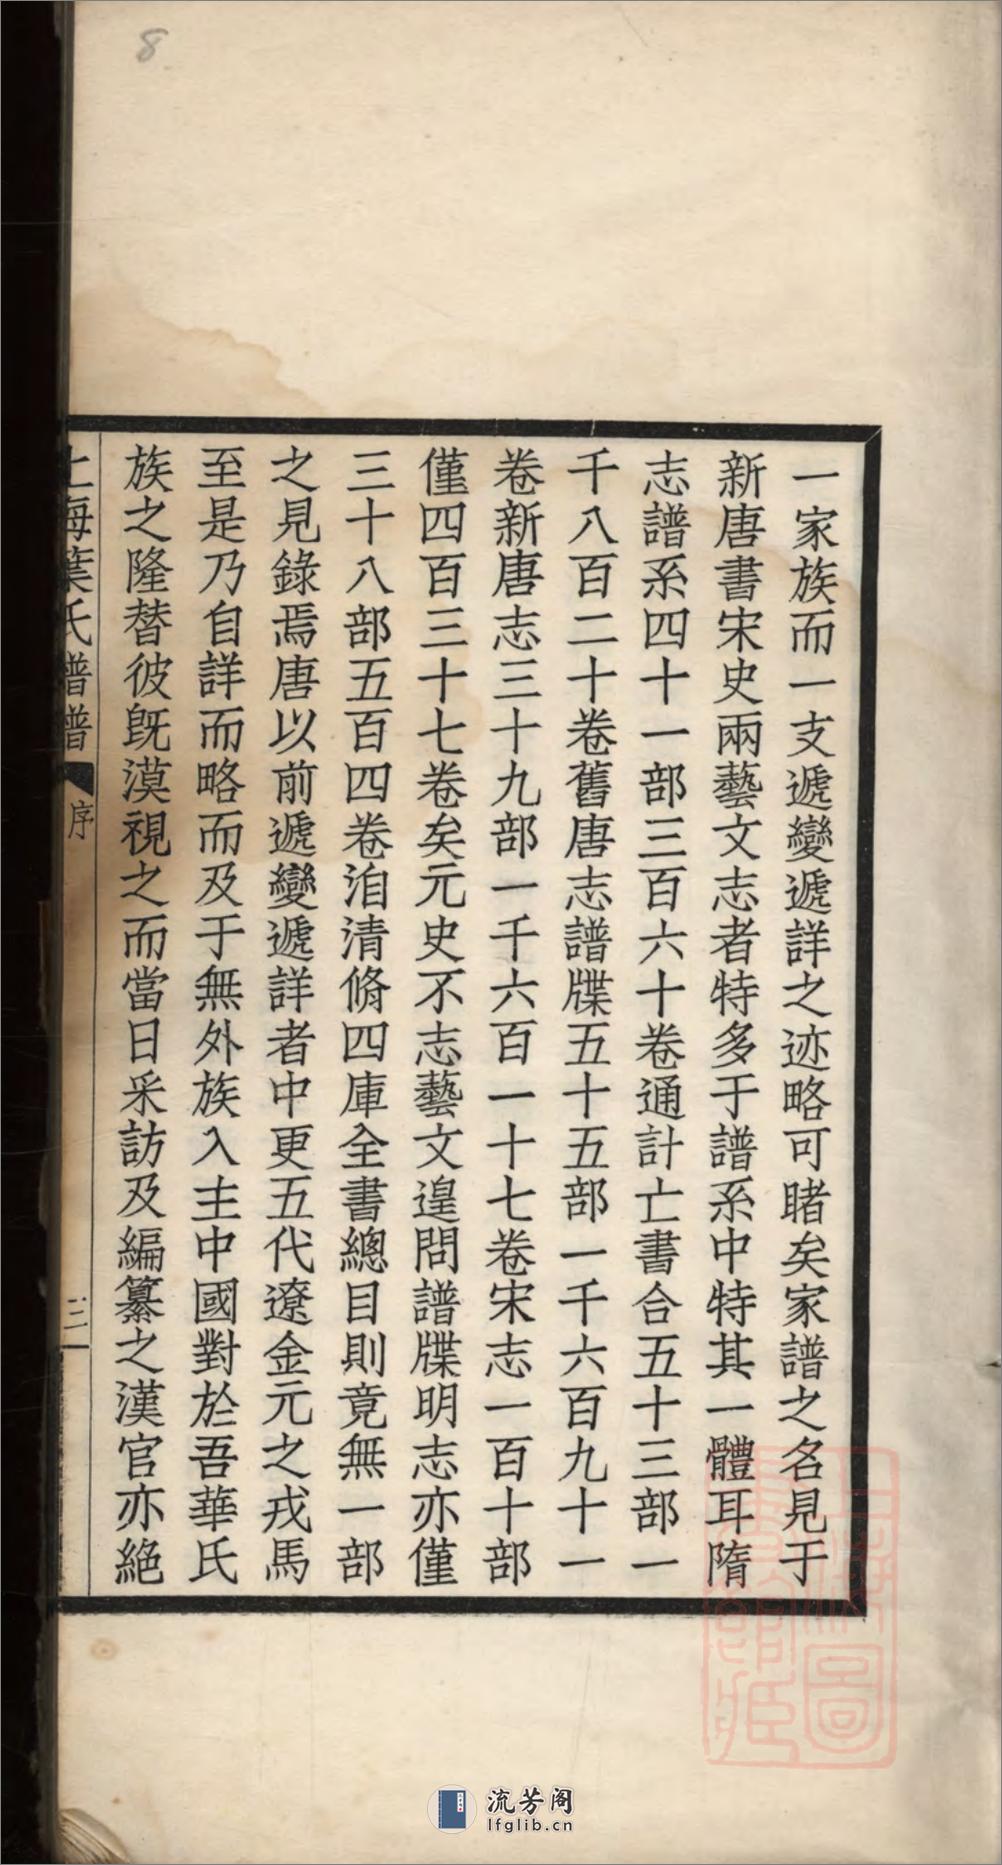 8
一家族而一支遞變遞詳之迹略可睹矣家譜之名見于
新唐書宋史兩藝文志者特多于譜系中特其一體耳隋
志譜系四十一部三百六十卷通計亡書合五十三部一
千八百二十卷舊唐志譜牒五十五部一千六百九十一
卷新唐志三十九部一千六百一十七卷宋志一百十部
僅四百三十七卷矣元史不志藝文遑問譜牒明志亦僅
三十八部五百四卷洎清脩四庫全書總目則竟無一部
之見錄焉唐以前遞變遞詳者中更五代遼金元之戎馬
至是乃自詳而略而及于無外族入主中國對於吾華氏
族之隆替彼旣漠視之而當日采訪及編纂之漢官亦絕
上海葉氏譜譜 序 三
上海圖書館藏
流芳阁
lfglib.cn